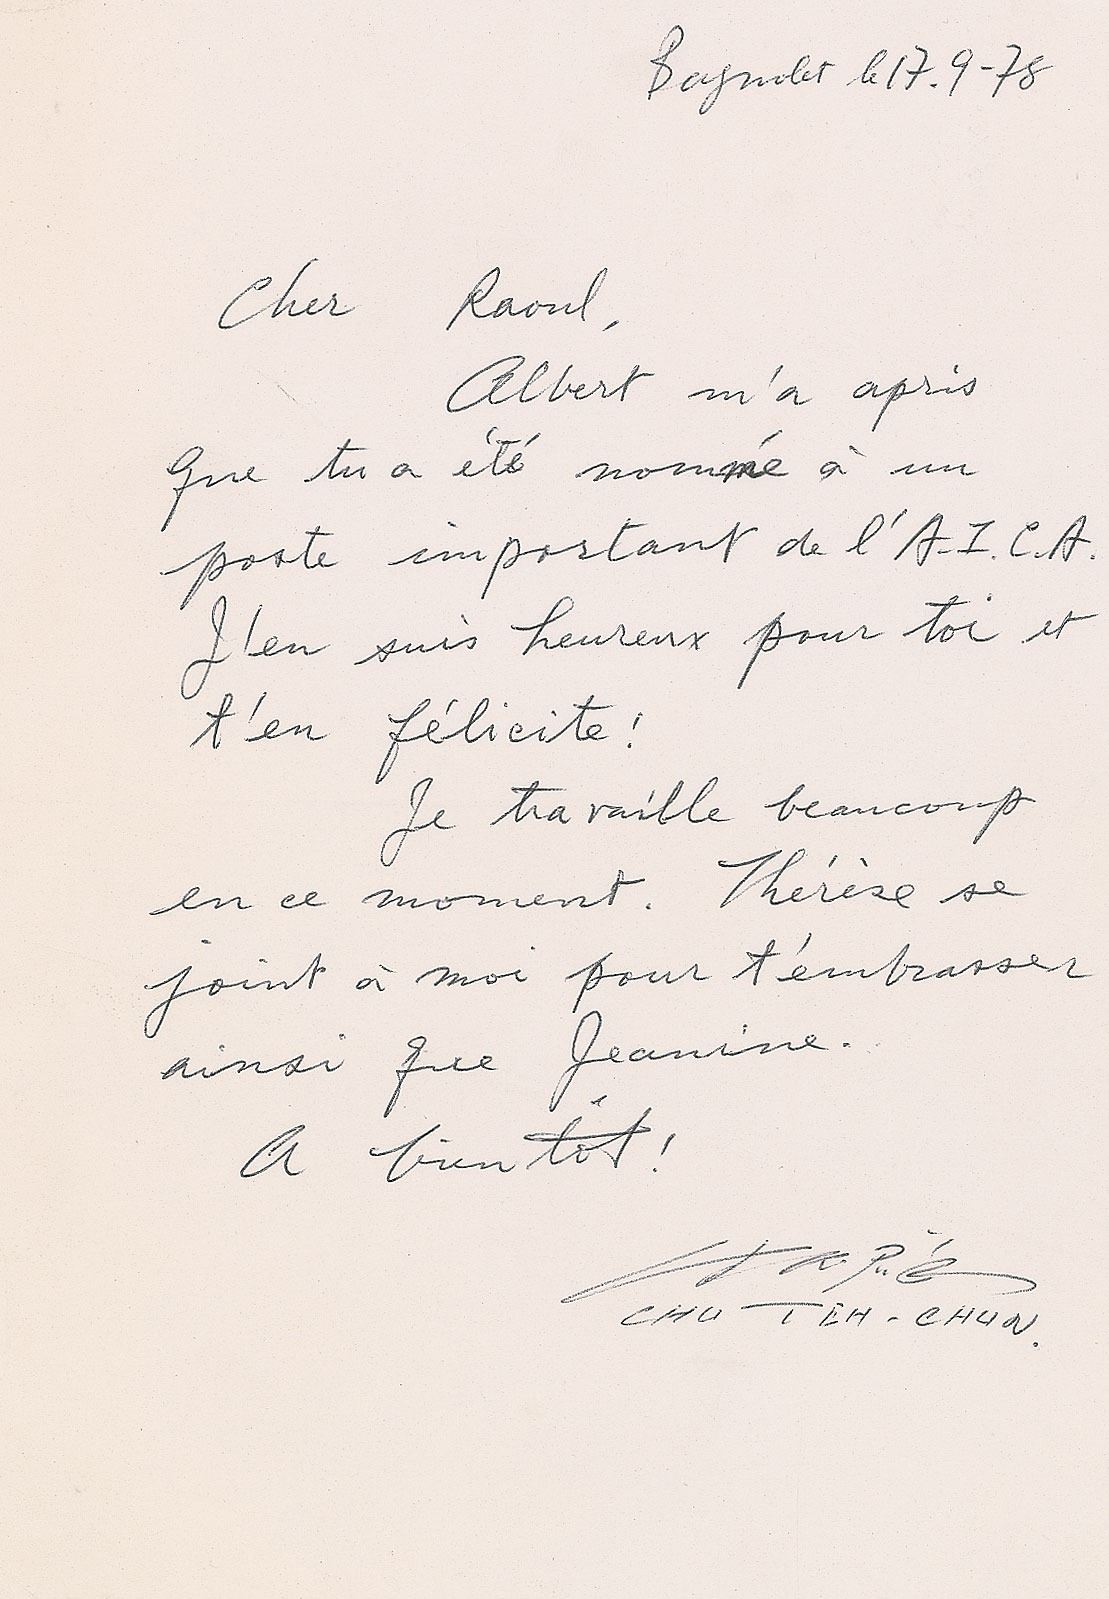 Bagnolet le 17.9-78
Cher Raoul,
Albert m'a apris
que tu a été nommé à un
poste important de l'A.I.C.A.
J'en suis heureux pour toi et
t'en félicite!
Je travaille beaucoup
en ce moment. Thérèse se
joint à moi pour t'embrasser
ainsi que Jeanine.
A bientôt!
CHU TEH-CHUN.